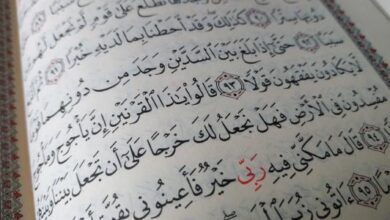 تَطْلُعُ عَلَىٰ قَوْمٍ لَّمْ نَجْعَل
دُونِهَا سِتْرًا ٩٠ كَذَٰلِكَ وَقَدْ أَحَطْنَا بِمَا لَدَيْهِ خُبْرًا ٩١
سَبَبًا ٩٢ حَتَّىٰٓ إِذَا بَلَغَ بَيْنَ ٱلسَّدَّيْنِ وَجَدَ مِن دُونِهِمَا
لَّا يَكَادُونَ يَفْقَهُونَ قَوْلًا ٩٣ قَالُوا۟ يَٰذَا ٱلْقَرْنَيْنِ إِنَّ يَأْجُوجَ وَمَأْجُوجَ
مُفْسِدُونَ فِى ٱلْأَرْضِ فَهَلْ نَجْعَلُ لَكَ خَرْجًا عَلَىٰٓ أَن تَجْعَلَ بَيْنَنَا
قَالَ مَا مَكَّنِّى فِيهِ رَبِّى خَيْرٌ فَأَعِينُونِى بِقُوَّةٍ ٩٥